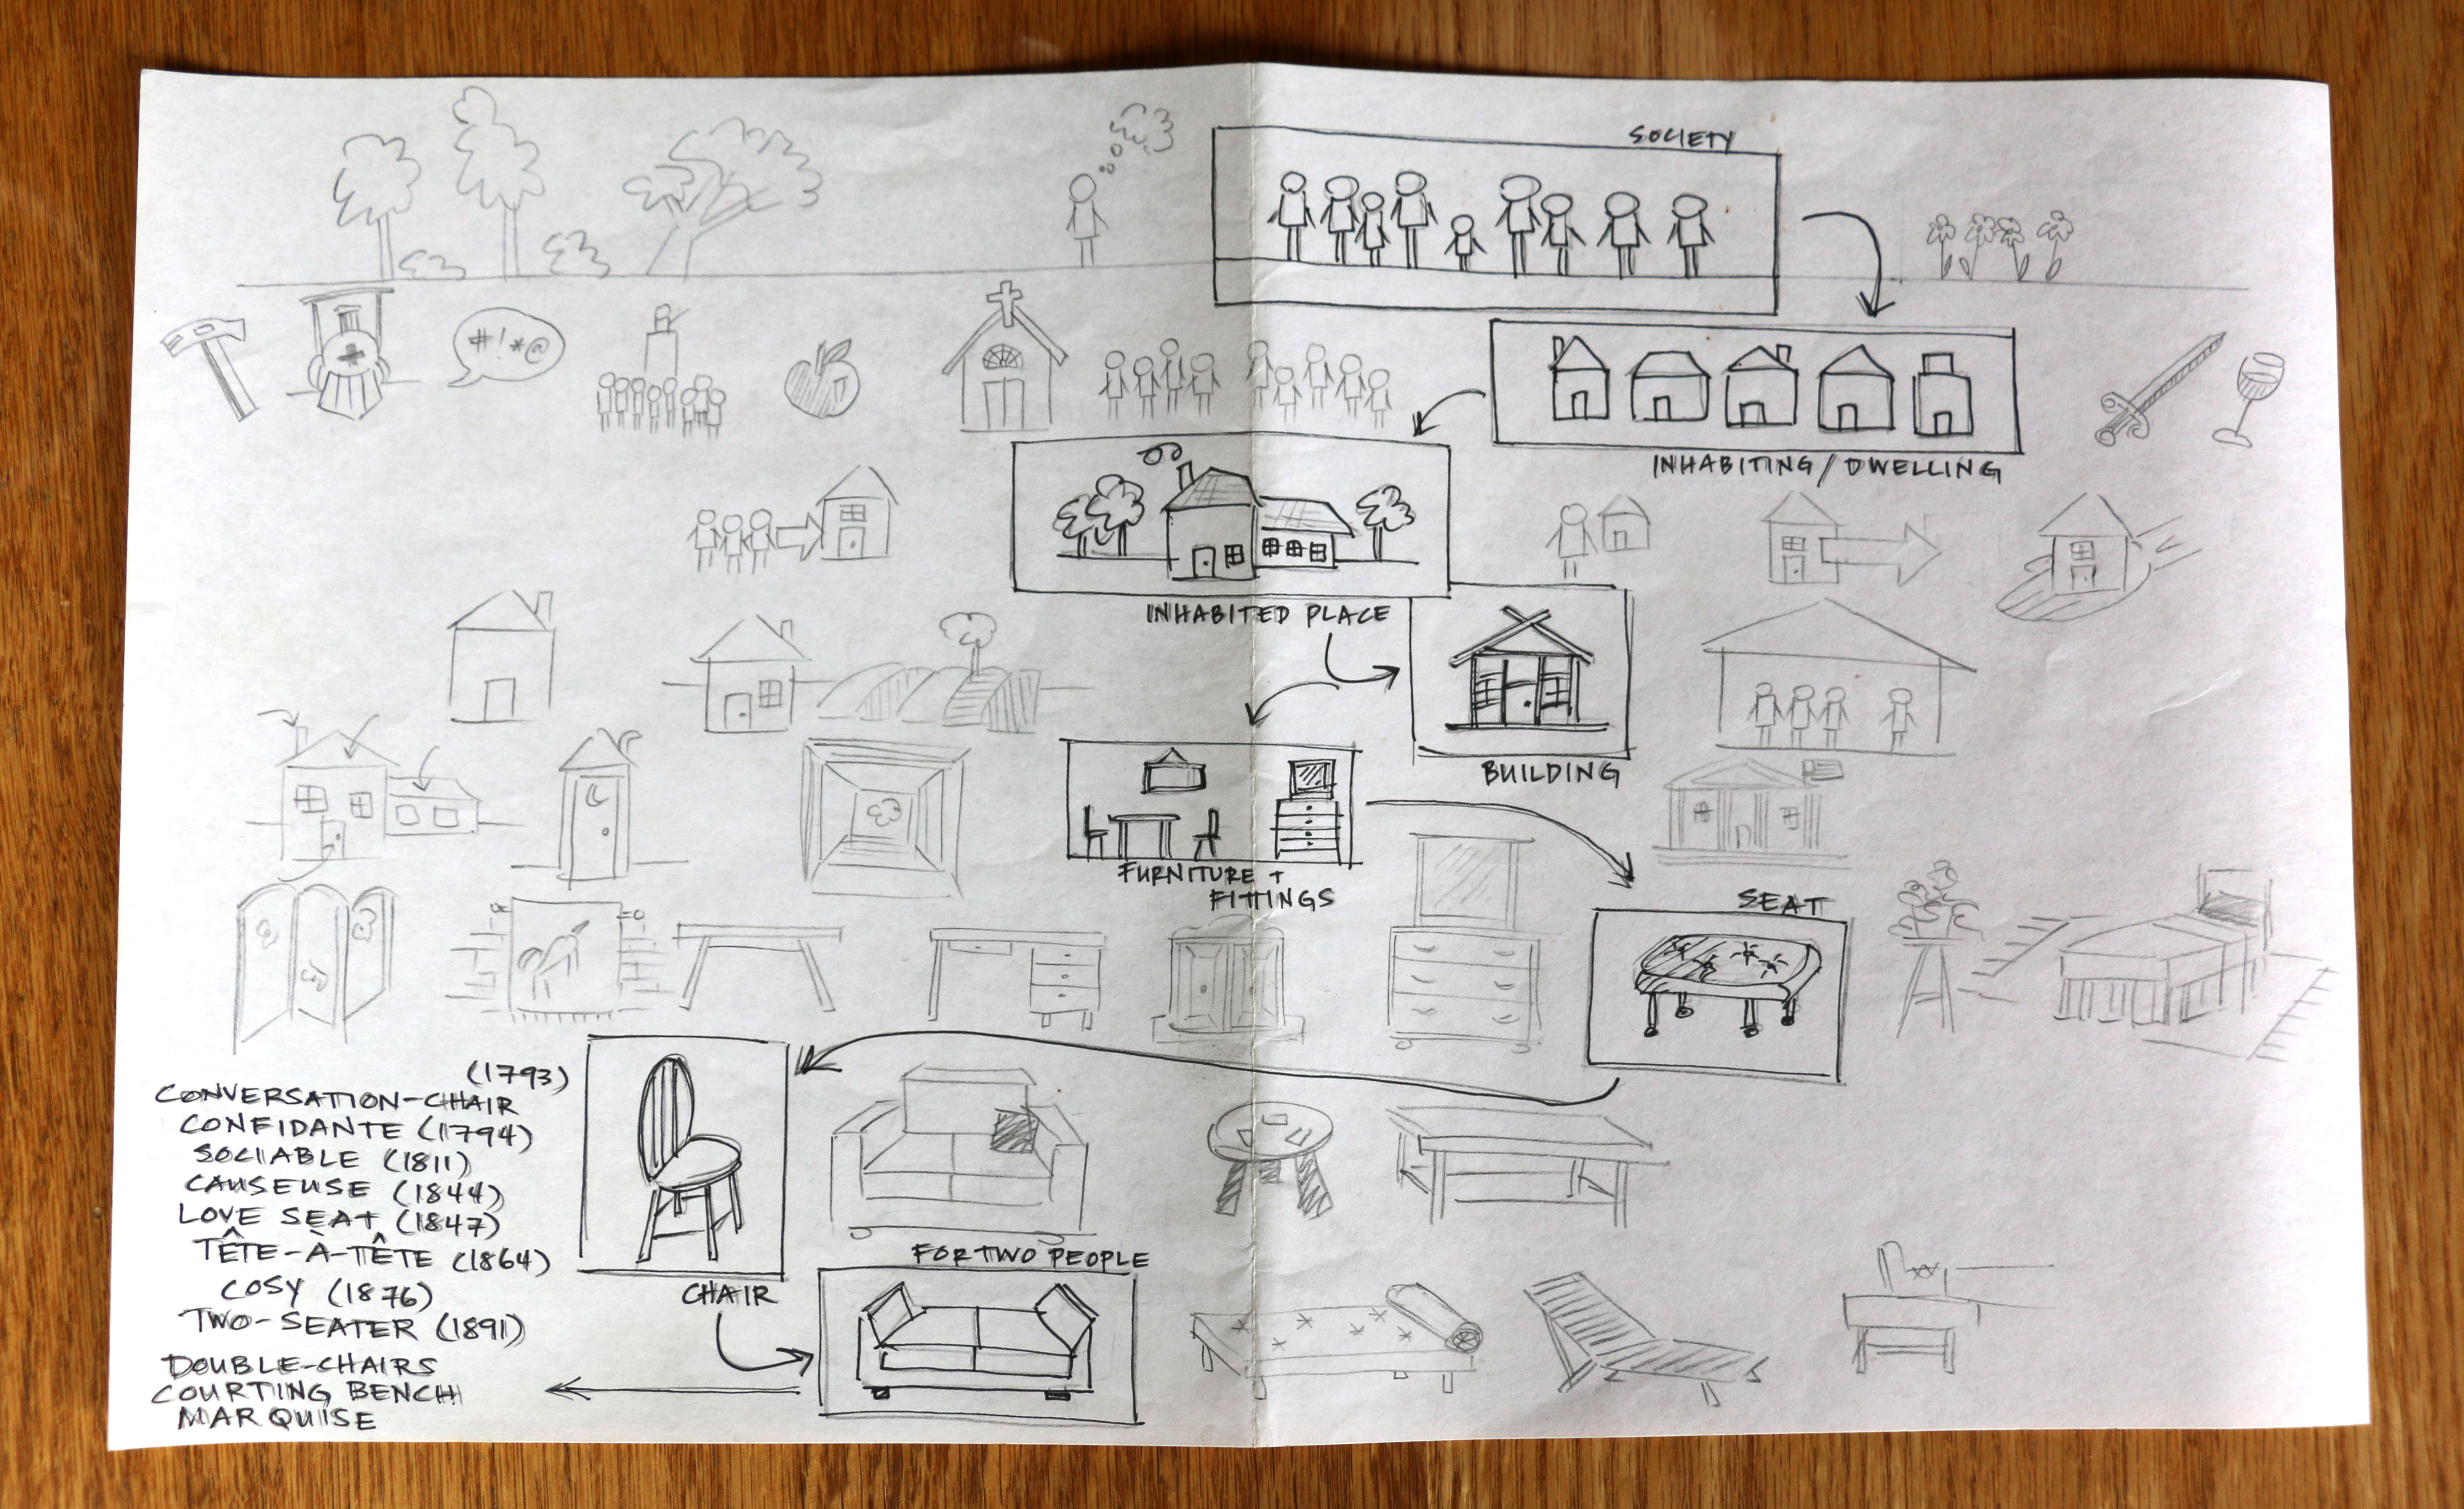 SOCIETY
#!*@
INHABITING/DWELLING
INHABITED PLACE
BUILDING
FURNITURE +
FITTINGS
SEAT
(1793)
CONVERSATION-CHAIR
CONFIDANTE (1794)
SOCIABLE (1811)
CAUSEUSE (1844)
LOVE SEAT (1847)
TÊTE-À-TÊTE (1864)
COSY (1876)
TWO-SEATER (1891)
DOUBLE-CHAIRS
COURTING BENCH
MARQUISE
CHAIR
FOR TWO PEOPLE